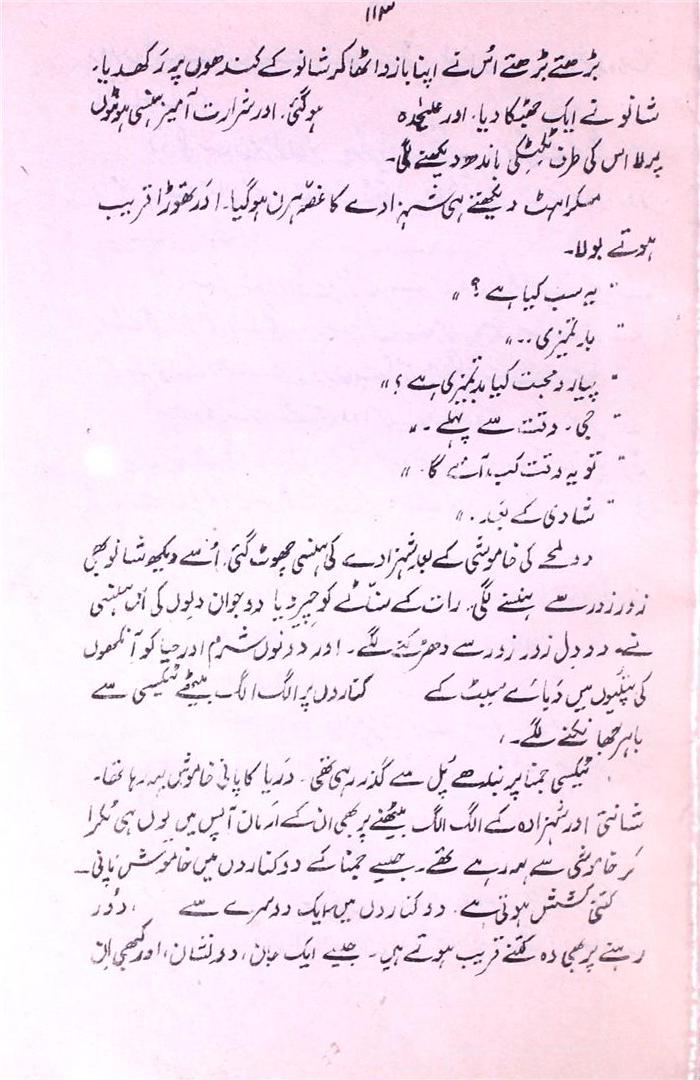 ۱۱۳
بڑھتے بڑھتے اُس نے اپنا بازو اٹھا کر شانو کے کندھوں پر رکھدیا۔
شانو نے ایک جھٹکا دیا۔ اور علیحدہ ہوگئی۔ اور شرارت آمیز ہنسی ہونٹوں
پر لا اس کی طرف ٹکٹکی باندھ دیکھنے لگی۔
مسکراہٹ دیکھتے ہی شہزادے کا غصّہ ہرن ہوگیا۔ اور تھوڑا قریب
ہوتے بولا۔
" یہ سب کیا ہے ؟ "
" بدتمیزی ... "
" پیار و محبت کیا بدتمیزی ہے ؟ "
" جی۔ وقت سے پہلے ۔ "
" تو یہ وقت کب آئے گا۔ "
" شادی کے بعد۔ "
دو لمحے کی خاموشی کے بعد شہزادے کی ہنسی چھوٹ گئی۔ اُسے دیکھ شانو بھی
زور زور سے ہنسنے لگی۔ رات کے سناٹے کو چیر دیا دو جوان دلوں کی اس ہنسی
نے۔ دو دل زور زور سے دھڑکنے لگے۔ اور دونوں شرم اور حیا کو آنکھوں
کی پتلیوں میں دبائے سیٹ کے کناروں پر الگ الگ بیٹھے ٹیکسی سے
باہر جھانکنے لگے۔
ٹیکسی جمنا پر بندھے پل سے گذر رہی تھی۔ دریا کا پانی خاموش بہہ رہا تھا۔
شانتی اور شہزادہ کے الگ الگ بیٹھنے پر بھی ان کے ارمان آپس میں یوں ہی ٹکرا
کر خاموشی سے بہہ رہے تھے۔ جیسے جمنا کے دو کناروں میں خاموش پانی۔
کتنی کشش ہوتی ہے۔ دو کناروں میں۔ ایک دوسرے سے دور
رہنے پر بھی وہ کتنے قریب ہوتے ہیں۔ جیسے ایک جان، دو نشان، اور کبھی ان